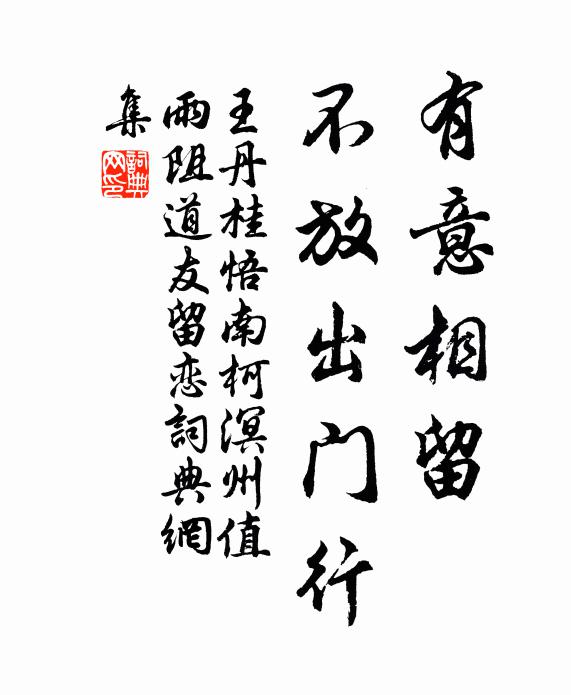 有意相留
不放出门行
王丹桂悟南柯溟州值
雨阻道友留恋詞典網
集
詞典網印